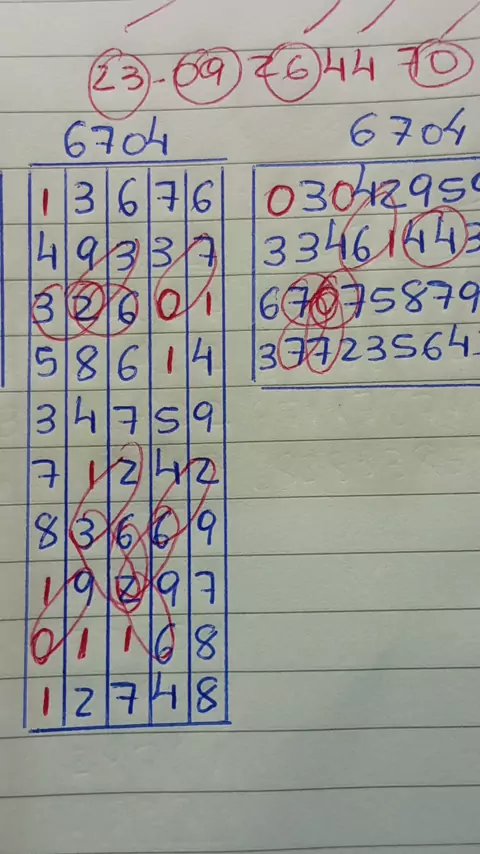 23-09 26 44 70
6704
1 3 6 7 6
4 9 3 3 7
3 2 6 0 1
5 8 6 1 4
3 4 7 5 9
7 1 2 4 2
8 3 6 6 9
1 9 2 9 7
0 1 1 6 8
1 2 7 4 8
6704
03042959
33461443
67075879
37723564